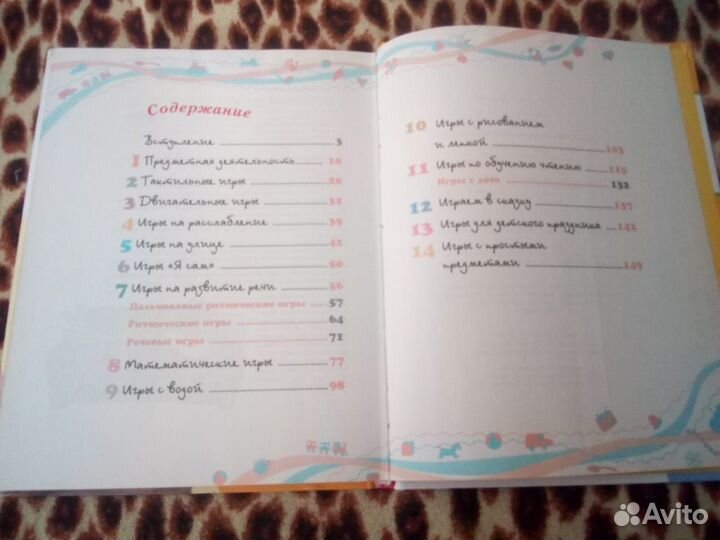 Содержание
Вступление 3
1 Предметная деятельность 10
2 Тактильные игры 20
3 Двигательные игры 32
4 Игры на расслабление 39
5 Игры на улице 42
6 Игры «Я сам» 50
7 Игры на развитие речи 56
Пальчиковые ритмические игры 57
Ритмические игры 64
Речевые игры 71
8 Математические игры 77
9 Игры с водой 98
10 Игры с рисованием
и лепкой 105
11 Игры по обучению чтению 115
Игры с лото 132
12 Играем в сказку 137
13 Игры для детского праздника 142
14 Игры с простыми
предметами 149
Avito